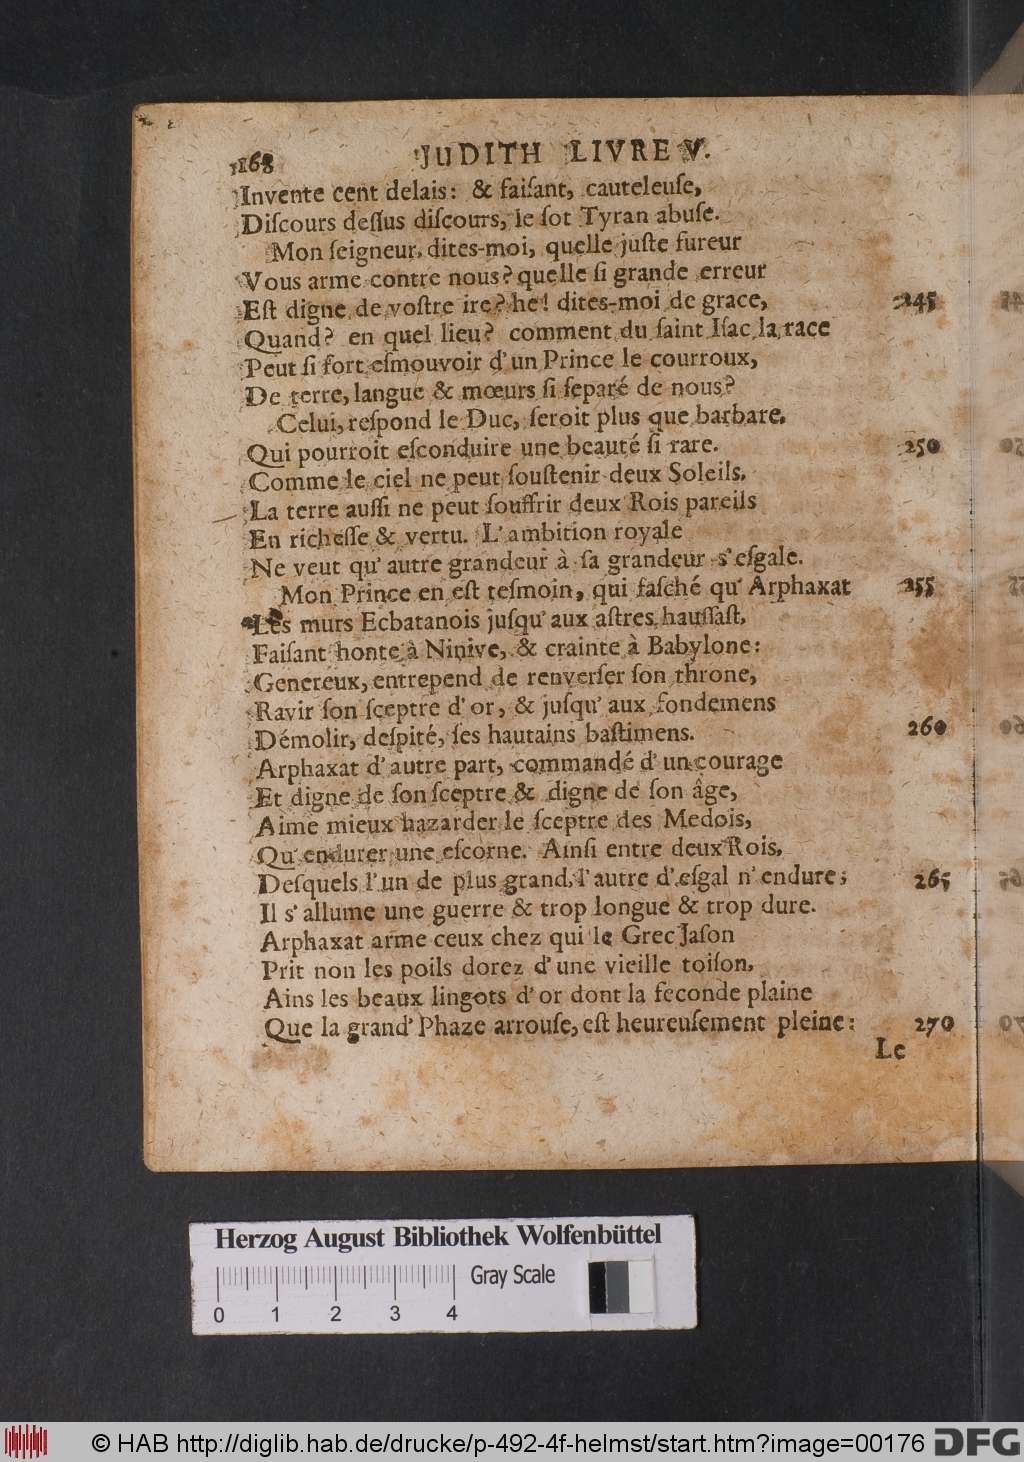 168 JUDITH LIVRE V.
Invente cent delais: & faiſant, cauteleuſe,
Diſcours deſſus diſcours, le ſot Tyran abuſe.
Mon ſeigneur, dites-moi, quelle juſte fureur
Vous arme contre nous? quelle ſi grande erreur
Eſt digne de voſtre ire? he! dites-moi de grace, 245
Quand? en quel lieu? comment du ſaint Iſac la race
Peut ſi fort eſmouvoir d'un Prince le courroux,
De terre, langue & mœurs ſi ſeparé de nous?
Celui, reſpond le Duc, ſeroit plus que barbare,
Qui pourroit eſconduire une beauté ſi rare. 250
Comme le ciel ne peut ſouſtenir deux Soleils,
La terre auſſi ne peut ſouffrir deux Rois pareils
En richeſſe & vertu. L'ambition royale
Ne veut qu'autre grandeur à ſa grandeur s'eſgale.
Mon Prince en eſt teſmoin, qui faſché qu'Arphaxat 255
Les murs Ecbatanois juſqu'aux aſtres hauſſaſt,
Faiſant honte à Ninive, & crainte à Babylone:
Genereux, entrepend de renverſer ſon throne,
Ravir ſon ſceptre d'or, & juſqu'aux fondemens
Démolir, deſpité, ſes hautains baſtimens. 260
Arphaxat d'autre part, commandé d'un courage
Et digne de ſon ſceptre & digne de ſon âge,
Aime mieux hazarder le ſceptre des Medois,
Qu'endurer une eſcorne. Ainſi entre deux Rois,
Deſquels l'un de plus grand, l'autre d'eſgal n'endure; 265
Il s'allume une guerre & trop longue & trop dure.
Arphaxat arme ceux chez qui le Grec Jaſon
Prit non les poils dorez d'une vieille toiſon,
Ains les beaux lingots d'or dont la feconde plaine
Que la grand' Phaze arrouſe, eſt heureuſement pleine: 270
Le
Herzog August Bibliothek Wolfenbüttel
Gray Scale
0 1 2 3 4
© HAB http://diglib.hab.de/drucke/p-492-4f-helmst/start.htm?image=00176 DFG